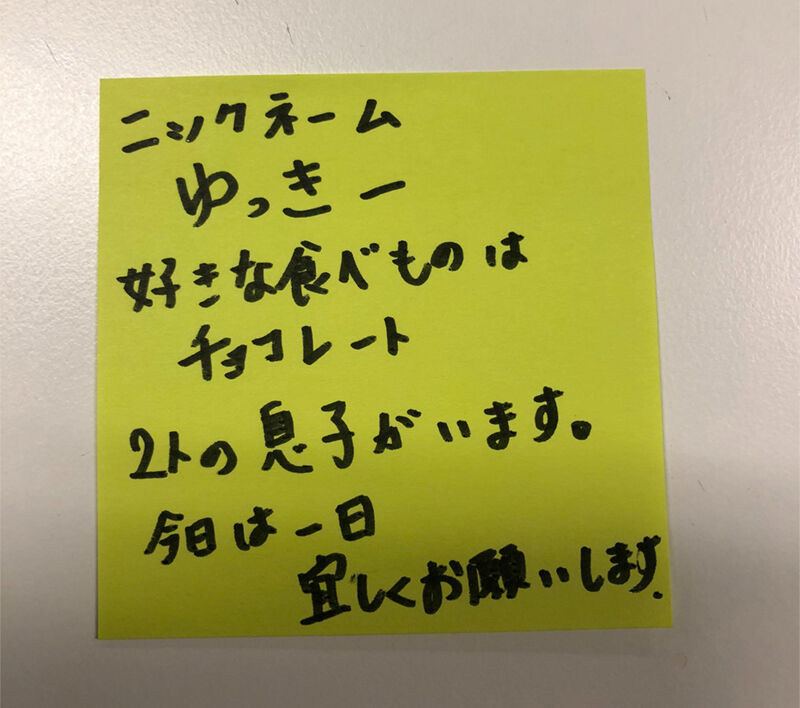 ニックネーム
ゆっきー
好きな食べものは
チョコレート
2人の息子がいます。
今日は一日
宜しくお願いします.